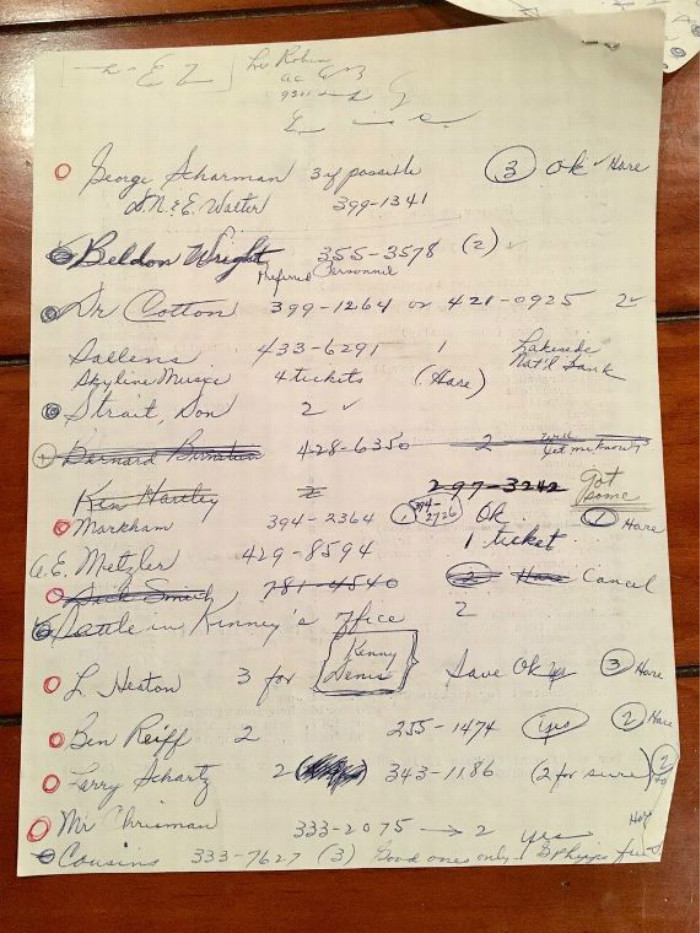 George Scharman 3 if possible 3 ok Hare
S.N. & E. Walter 399-1341
Beldon Wright 355-3578 (2)
Preferred Personnel
Dr Cotton 399-1264 or 421-0925 2
Sallens 433-6291 1 Lakeside
Skyline Music 4 tickets (Hare) Nat'l Bank
Strait, Don 2 ✓
Barnard Bernstein 428-6350 2 let me know
Ken Hartley 2 297-3242 Got some
Markham 394-2364 1 394-2726 OK 1 Hare
A.E. Metzler 429-8594 1 ticket
Jack Smith 781-4540 2 Hare Cancel
in Kinney's office 2
L. Heaton 3 for Kenny Denis Save Ok yes 3 Hare
Ben Reiff 2 255-1474 yes 2 Hare
Larry Schartz 2 343-1186 (2 for sure) 2
Mr Chrisman 333-2075 → 2 yes
Cousins 333-7627 (3) Good ones only